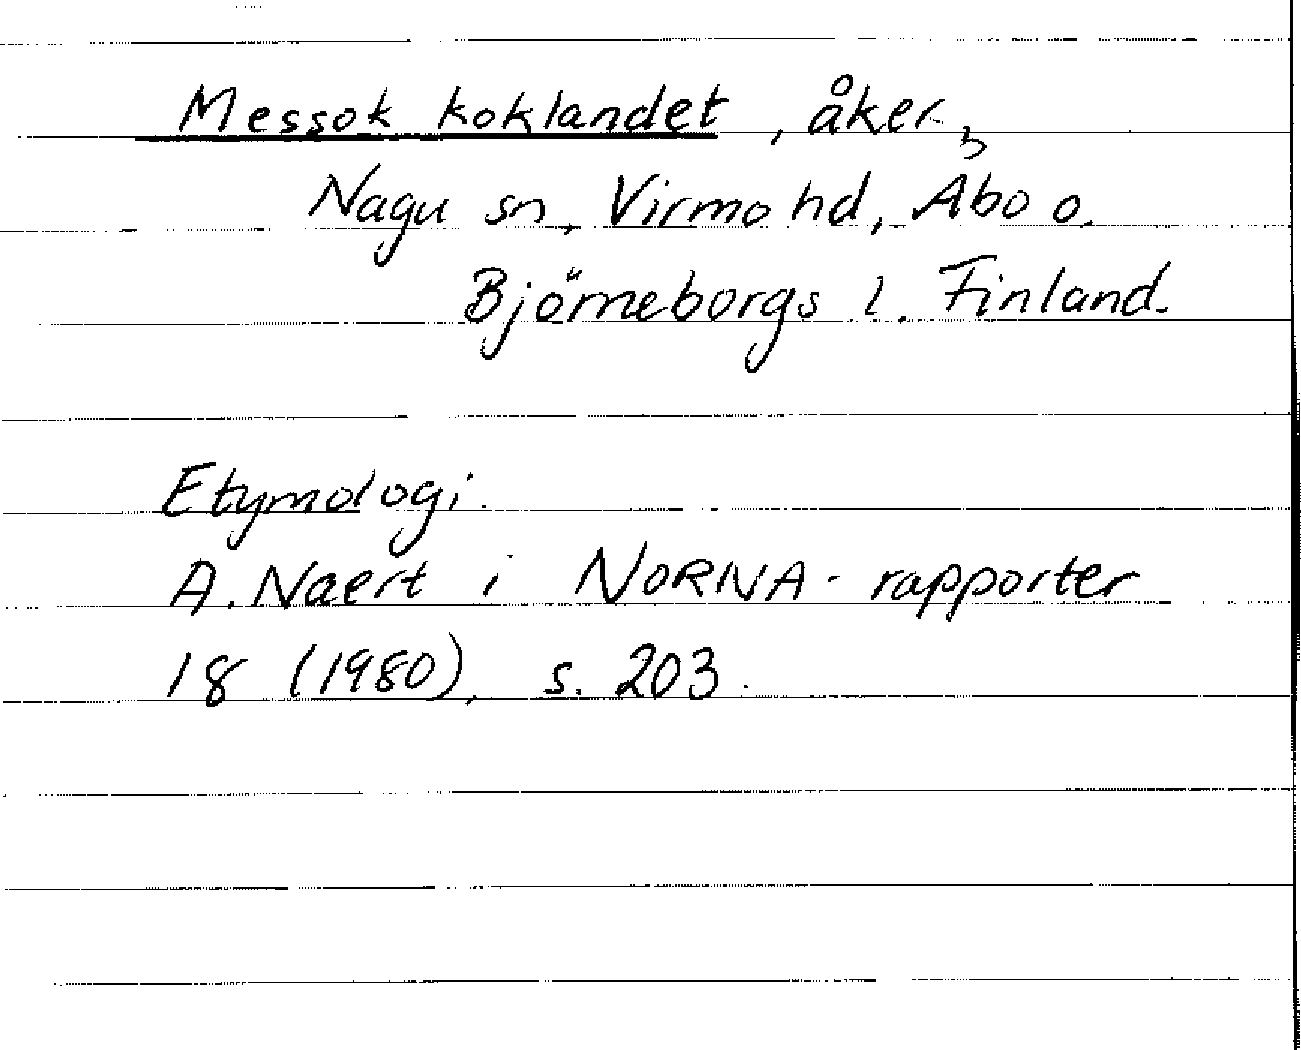 Messok koklandet, åker,
Nagu sn, Virmo hd, Åbo o.
Björneborgs l. Finland.
Etymologi.
A. Naert i NORNA-rapporter
18 (1980), s. 203.